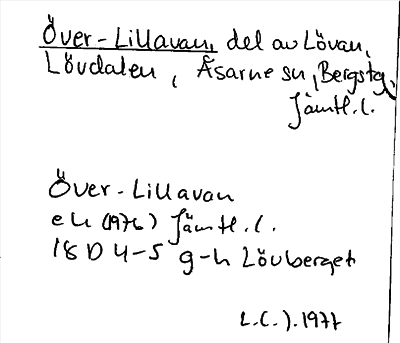 Över-Lillavan, del av Lövan,
Lövdalen, Åsarne sn, Bergs tg,
Jämtl. l.
Över-Lillavan
ek (1976) Jämtl. l.
18 D 4-5 g-h Lövberget
L.C.J. 1977